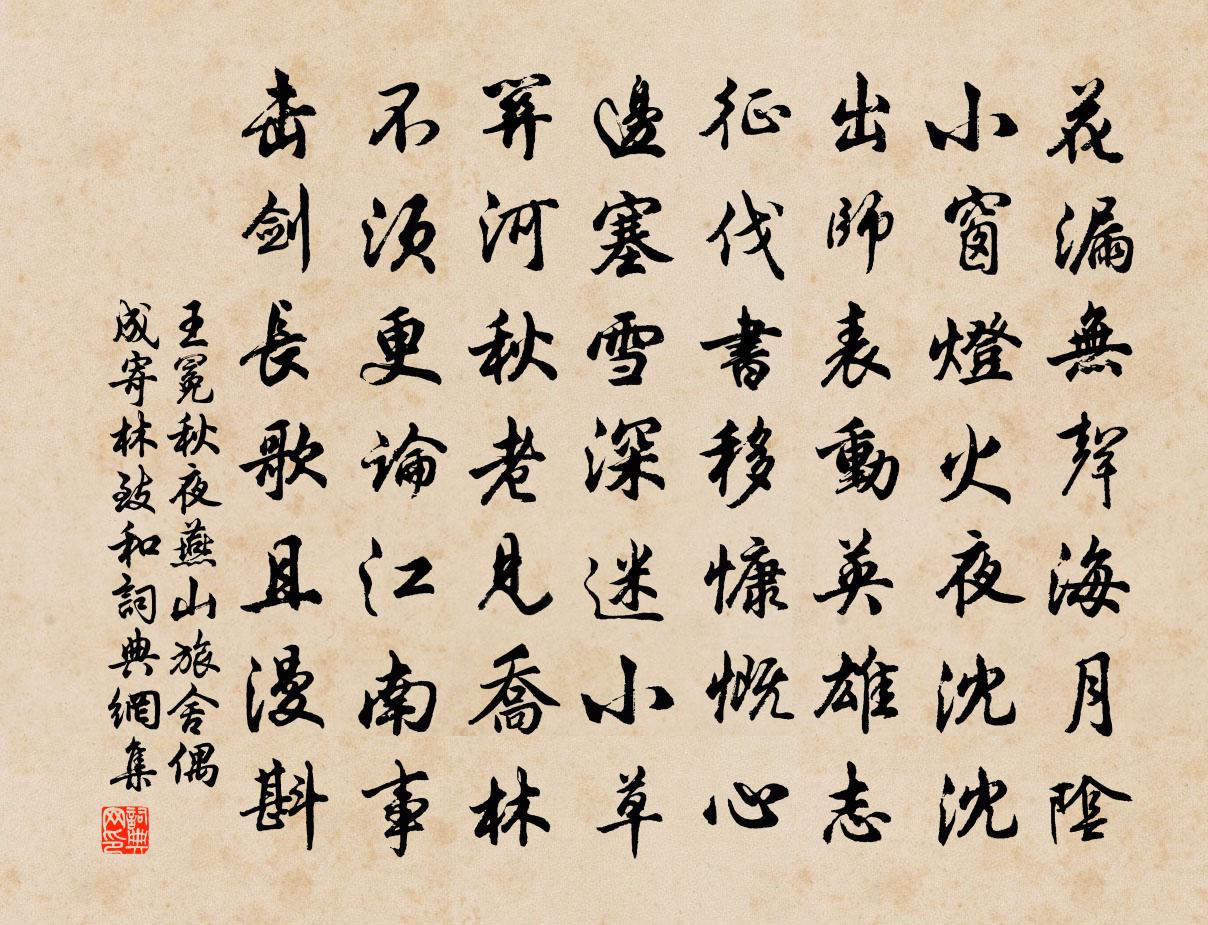 花漏無聲海月陰
小窗燈火夜沈沈
出師表動英雄志
征伐書移慷慨心
邊塞雪深迷小草
關河秋老見喬林
不須更論江南事
击剑長歌且漫斟
王冕秋夜燕山旅舍偶
成寄林致和詞典網集
詞典网印